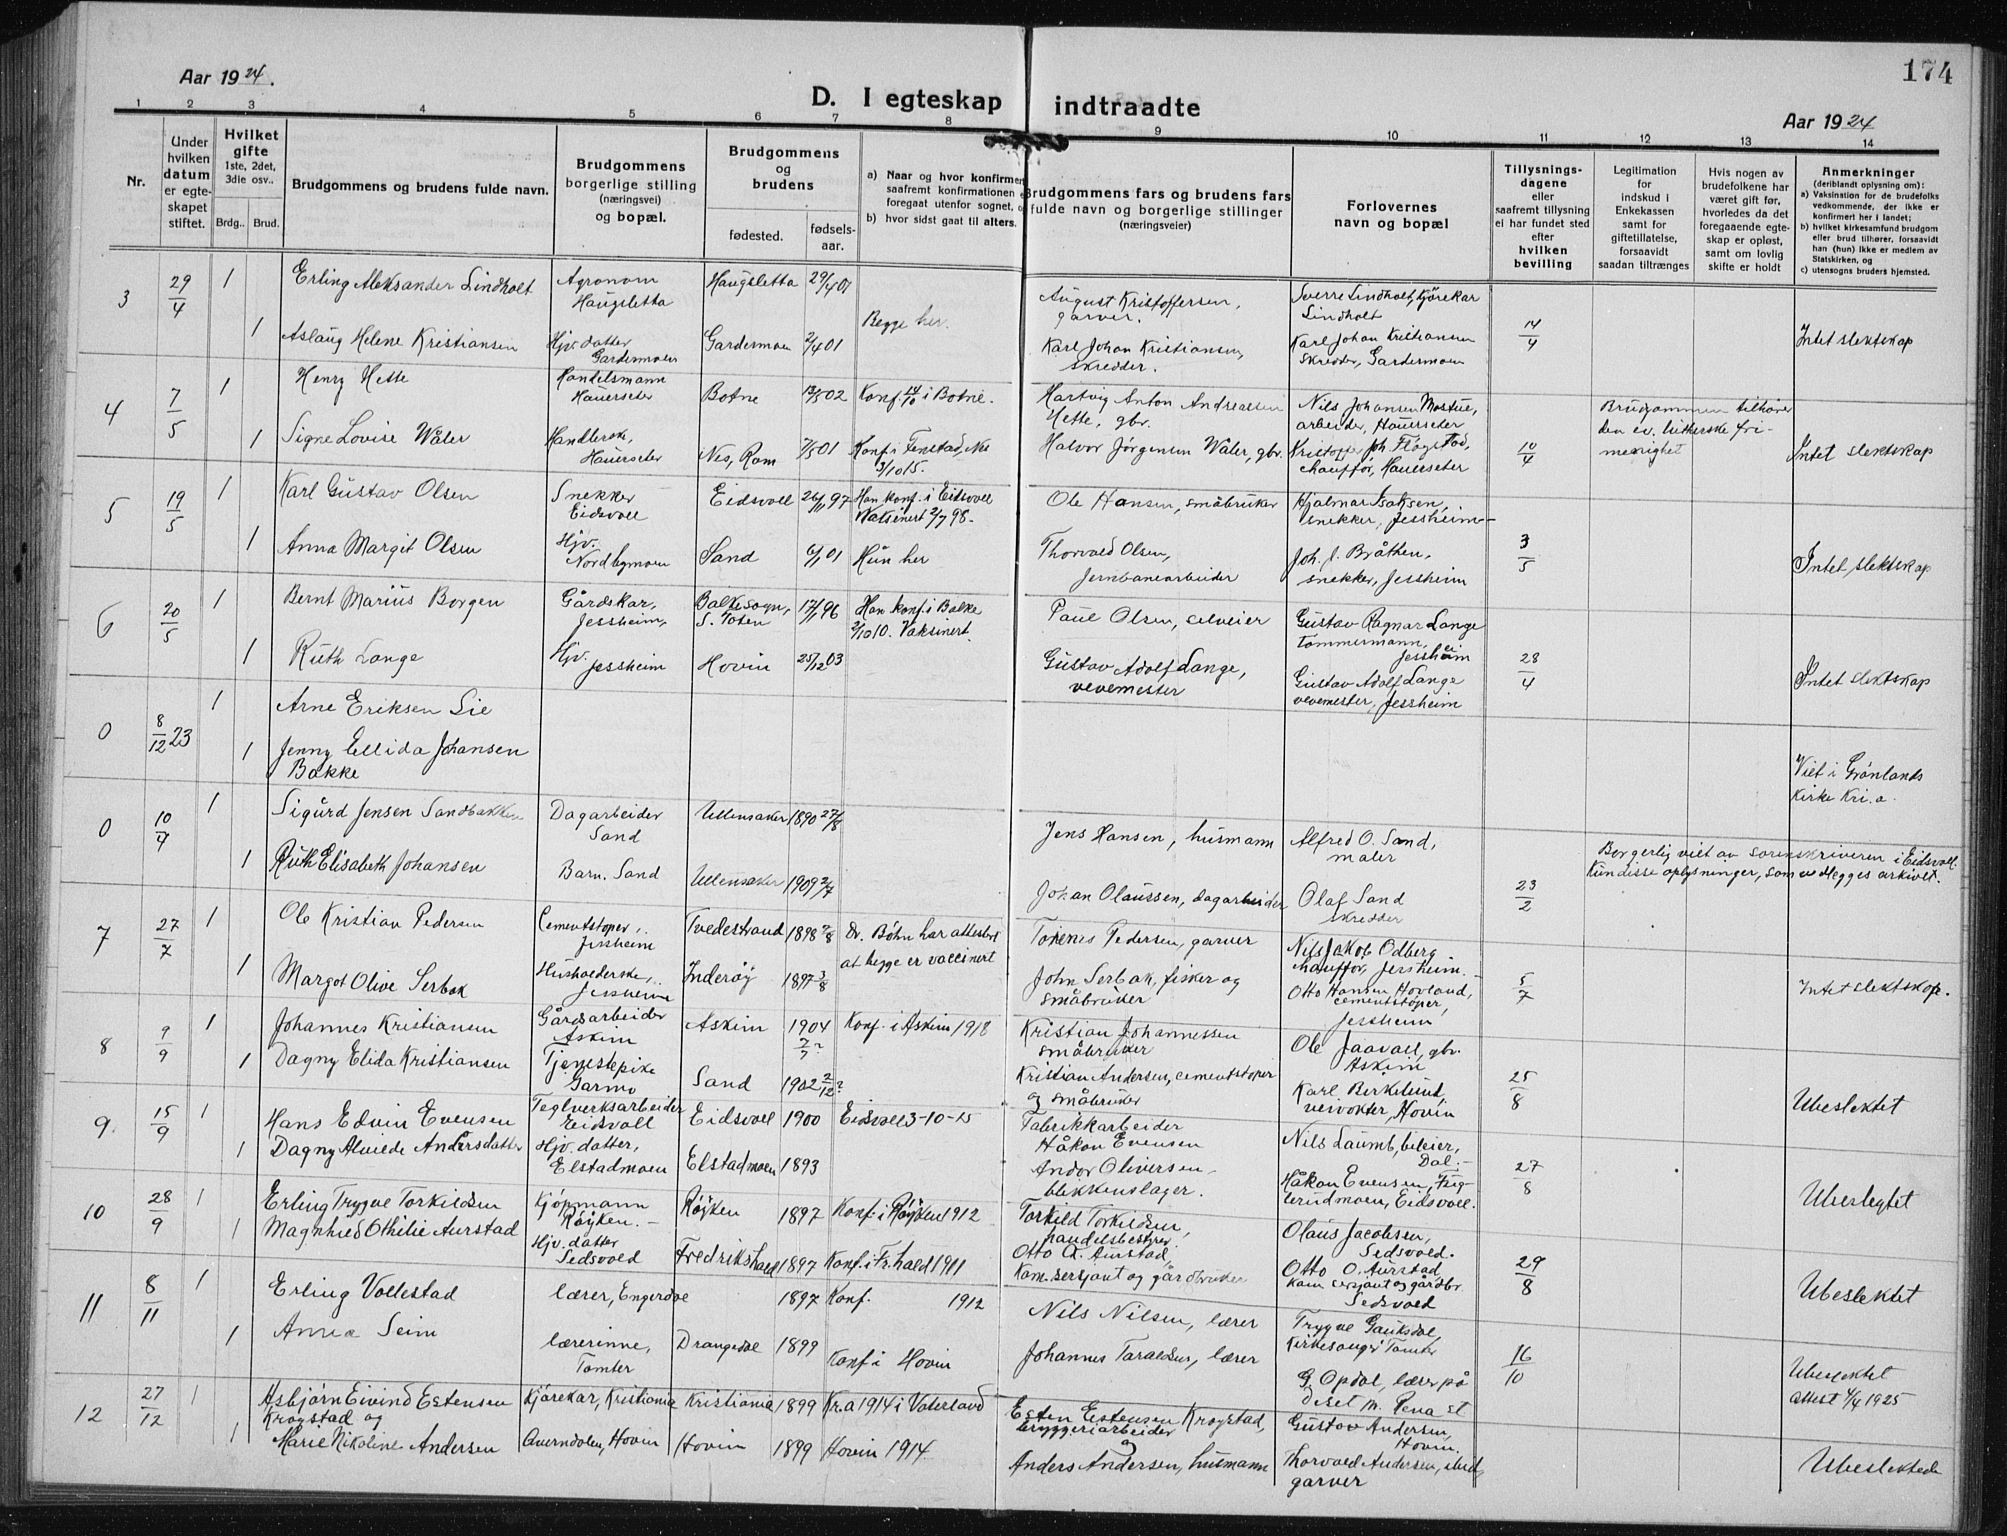 174
Aar 1924.
D. I egteskap indtraadte
Aar 1924
1 2 3 4 5 6 7 8 9 10 11 12 13 14
Nr.
Under hvilken datum er egteskapet stiftet.
Hvilket gifte 1ste, 2det, 3die osv..
Brdg.. Brud.
Brudgommens og brudens fulde navn.
Brudgommens borgerlige stilling (næringsvei) og bopæl.
Brudgommens og brudens
fødested. fødselsaar.
a) Naar og hvor konfirmert saafremt konfirmationen foregaat utenfor sognet,
b) hvor sidst gaat til alters.
Brudgommens fars og brudens fars fulde navn og borgerlige stillinger (næringsveier)
Forlovernes navn og bopæl
Tillysningsdagene eller saafremt tillysning ei har fundet sted efter hvilken bevilling
Legitimation for indskud i Enkekassen samt for giftetillatelse, forsaavidt saadan tiltrænges
Hvis nogen av brudefolkene har været gift før, hvorledes da det foregaaende egteskap er opløst, samt om lovlig skifte er holdt
Anmerkninger (deriblandt oplysning om):
a) Vaksination for de brudefolks vedkommende, der ikke er konfirmert her i landet;
b) hvilket kirkesamfund brudgom eller brud tilhører, forsaavidt han (hun) ikke er medlem av Statskirken, og
c) utensogns bruders hjemsted.
3 29/4 1 Erling Aleksander Lindholt Agronom Haugsletta Haugsletta 29/4 01 Begge her. August Kristoffersen, garver. Sverre Lindholt, Kjörekar Lindholt 14/4
1 Aslaug Helene Kristiansen Hjv. datter Gardermoen Gardermoen 2/4 01 Karl Johan Kristiansen, skredder. Karl Johan Kristiansen skredder, Gardermoen Intet slektskap
4 7/5 1 Henry Hette Handelsmann Hauerseter Botne 02 Konf. i Botne. Hartvig Anton Andreassen Hette, gbr. Nils Johansen Mostue, arbeider, Hauerseter Brudgommen tilhører den ev. lutherske frimenighet
1 Signe Lovise Wåler Handlerske, Hauerseter Nes, Rom 7/5 01 Konf. i Fenstad, Nes 3/10 15. Halvor Jörgensen Wåler, gbr. Kristoffer Joh. Flogstad, chauffør, Hauerseter 10/4 Intet slektskap
5 19/5 1 Karl Gustav Olsen Snekker Eidsvoll Eidsvoll 26/11 97 Han konf. i Eidsvoll Vaksinert 2/7 98. Ole Hansen, småbruker Hjalmar Isaksen, snekker, Jessheim
1 Anna Margit Olsen Hjv. Nordbymoen Sand 6/1 01 Hun her Thorvald Olsen, jernbanearbeider Joh. J. Bråthen, snekker, Jessheim 3/5 Intet slektskap
6 20/5 1 Bernt Marius Borgen Gårdskar, Jessheim, Balke sogn, S. Toten 17/11 96 Han konf. i Balke 2/10 10. Vaksinert. Paul Olsen, selveier Gustav Ragnar Lange tømmermann, Jessheim
1 Ruth Lange Hjv. Jessheim Hovin 25/12 03 Gustav Adolf Lange, vevemester Gustav Adolf Lange vevemester, Jessheim 28/4 Intet slektskap
0 8/12 23 1 Arne Eriksen Lie
1 Jenny Ellida Johansen Bakke Viet i Grønlands Kirke Kri.a.
0 10/7 1 Sigurd Jensen Sandbakken Dagarbeider Sand Ullensaker 1890 27/8 Jens Hansen, husmann Alfred O. Sand, maler Borgerlig viet av sorenskriveren i Eidsvoll. Kun disse oplysninger, som vedlegges arkivet.
1 Ruth Elisabeth Johansen Barn. Sand Ullensaker 1909 2/7 Johan Olaussen, dagarbeider Olaf Sand skredder 23/2
7 27/7 1 Ole Kristian Pedersen Cementstøper, Jessheim Tvedestrand 1898 dr. Bøhn har attestert at begge er vaccinert Pedersen, garver Nils Jakob Odberg chauffør, Jessheim.
1 Margot Olive Serbak Husholderske, Jessheim Inderøy 1897 3/8 John Serbak, fisker og småbruker Otto Hansen Hovland, cementstøper, Jessheim 5/7 Intet slektskap.
8 9/9 1 Johannes Kristiansen Gårdsarbeider Askim Askim 1904 Konf. i Askim 1918 Kristian Johannessen småbruker Ole Jaavall, gbr. Askim
1 Dagny Elida Kristiansen Tjenestepike Garmo Sand 1902 2/12? Kristian Andersen, cementstøper og småbruker Karl Birkelund, veivokter, Hovin 25/8 Ubeslektet
9. 15/9 1 Hans Edvin Evensen Teglverksarbeider Eidsvoll Eidsvoll 1900 Eidsvoll 3-10-15 Fabrikkarbeider Håkon Evensen Nils Laumb, bileier, Dal.
1 Dagny Alvilde Andersdatter Hjv. datter, Elstadmoen Elstadmoen 1893 Andor Oliversen blikkenslager. Håkon Evensen, Eidsvoll. 27/8 Ubeslegtet
10 28/9 1 Erling Trygve Torkildsen Kjöpmann Röyken. Röyken 1897 Konf. i Röyken 1912 Torkild Torkildsen, handelsbestyrer Olaus Jacobsen, Sedsvold.
1 Magnhild Othilie Aurstad Hjv. datter Sedsvold Fredrikshald 1897 Konf. i Fr.hald 1911 Otto O. Aurstad, Kom.sersjant og gårdbruker Otto O. Aurstad kom sersjant og gårdbr. Sedsvold 29/8 Ubeslektet
11 8/11 1 Erling Vollestad lærer, Engerdal 1897 Konf. 1912 Nils Nilsen, lærer Trygve Gauksdal, Kirkesanger Tomter
1 Anna Seim lærerinne, Tomter Drangedal 1899 Konf. i Hovin Johannes Taraldsen, lærer G. Opdal, lærer på Diset m. Rena st 16/10 Ubeslektet attest 4/4 1925
12 27/12 1 Asbjørn Eivind Estensen Krogstad og Kjörekar, Kristiania Kristiania 1899 Kr.a 1914 i Vaterland Esten Estensen Krogstad, bryggeriarbeider og Gustav Andersen, Hovin.
1 Marie Nikoline Andersen Averndalen, Hovin Hovin 1899 Hovin 1914. Anders Andersen, husmann Thorvald Andersen, garver Ubeslektede